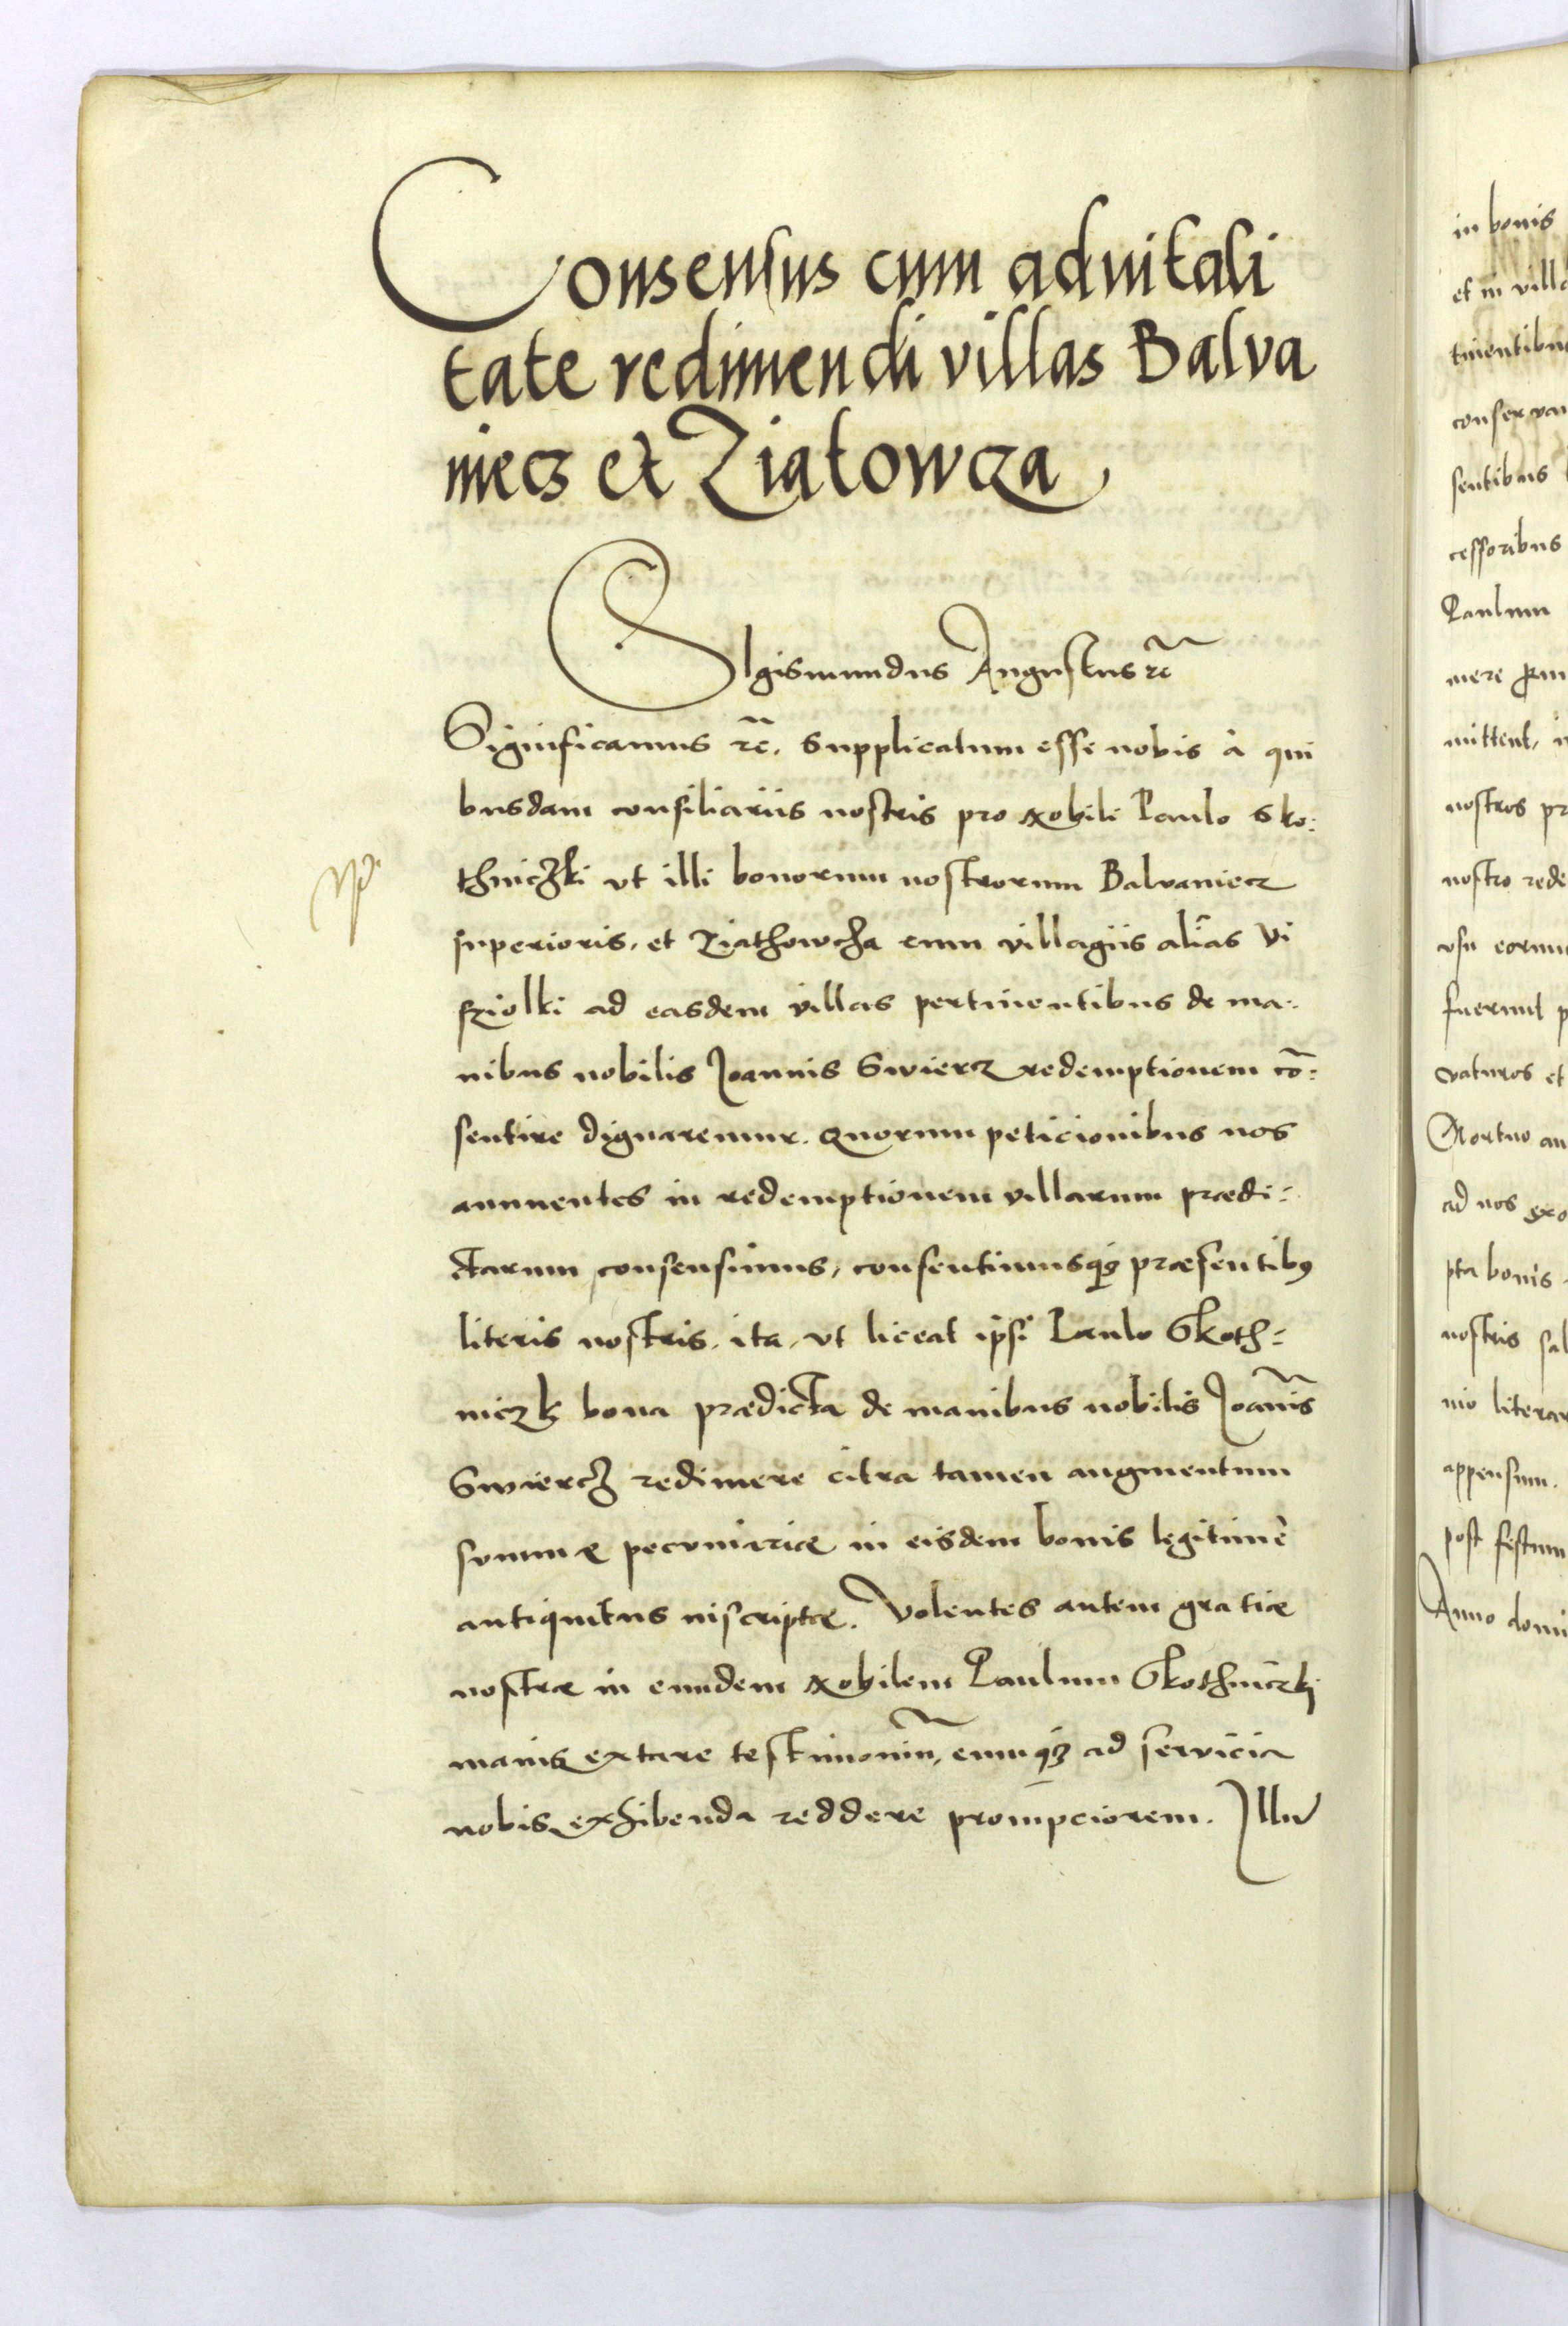 Consensus cum aduitali
tate redimendi villas Balva
niecz et Ziatowcza
SIgismundus Augustus rc̃
Significamus rc̃. Supplicatum esse nobis à qui
busdam consiliariis nostris pro nobili Paulo Sko:
thniczki vt illi bonorum nostrorum Balvaniecz
superioris, et Ziathowcza cum villagiis alias Vi
sziolki ad easdem villas pertinentibus de ma:
nibus nobilis Joannis Swiercz redemptionem cõ:
sentire dignaremur. Quorum peticionibus nos
annuentes in redemptionem villarum prædi:
ctarum consensimus, consentimusq3 præsentib9
literis nostris, ita, vt liceat ipsi Paulo Skoth:
niczky bona prædicta de manibus nobilis Joañis
Swiercz redimere citra tamen augmentum
summæ pecuniariæ in eisdem bonis legitimè
antiquitus inscriptæ. Volentes autem gratiæ
nostræ in eundem nobilem Paulum Skothniczki
maius extare testimoniũ, eumq3 ad servicia
nobis exhibenda reddere prompciorem. Illu
in bonis
et in villa
tinentibus
conservan
sentibus
cessoribus
Paulum
mere
mittent,
nostros pr
nostro rede
vsu eorum
fuerunt p
vaturos et
Mortuo au
ad nos
pta bonis
nostris sal
nio literar
appensum.
post festum
Anno domi